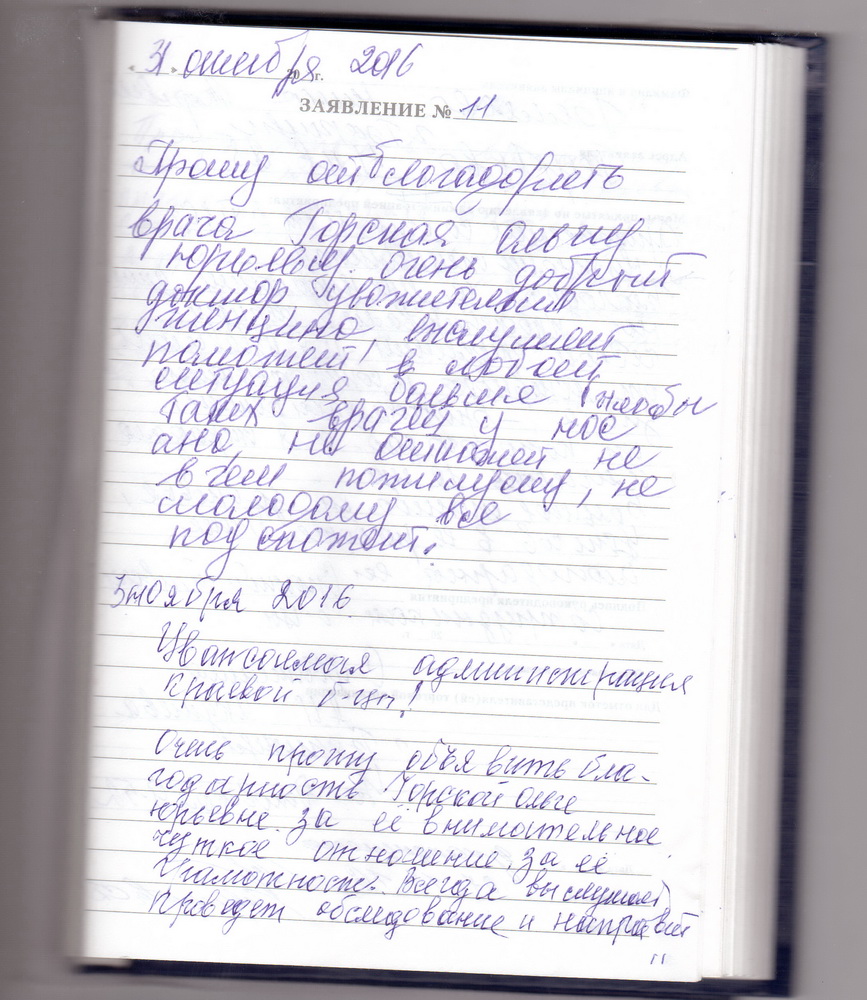 « 31 » октября 2016
20 г.
ЗАЯВЛЕНИЕ № 11
Прошу отблогадорлеть
врача Горская Ольгу
юриевну. очень добрый
доктор уважителная
женщино, выслушает
поможет в любой
ситуация болшя
таких врачей у нос
оно, ни откожет не
в чем пожилому, не
молодому все
подскожет.
3 ноября 2016
Уважаемая администрация
краевой б-цы!
Очень прошу объявить бла-
годарность Горской Ольге
Юрьевне за её внимательное
чуткое отношение, за её
грамотность. Всегда выслушает,
проведет обследование и направит
11